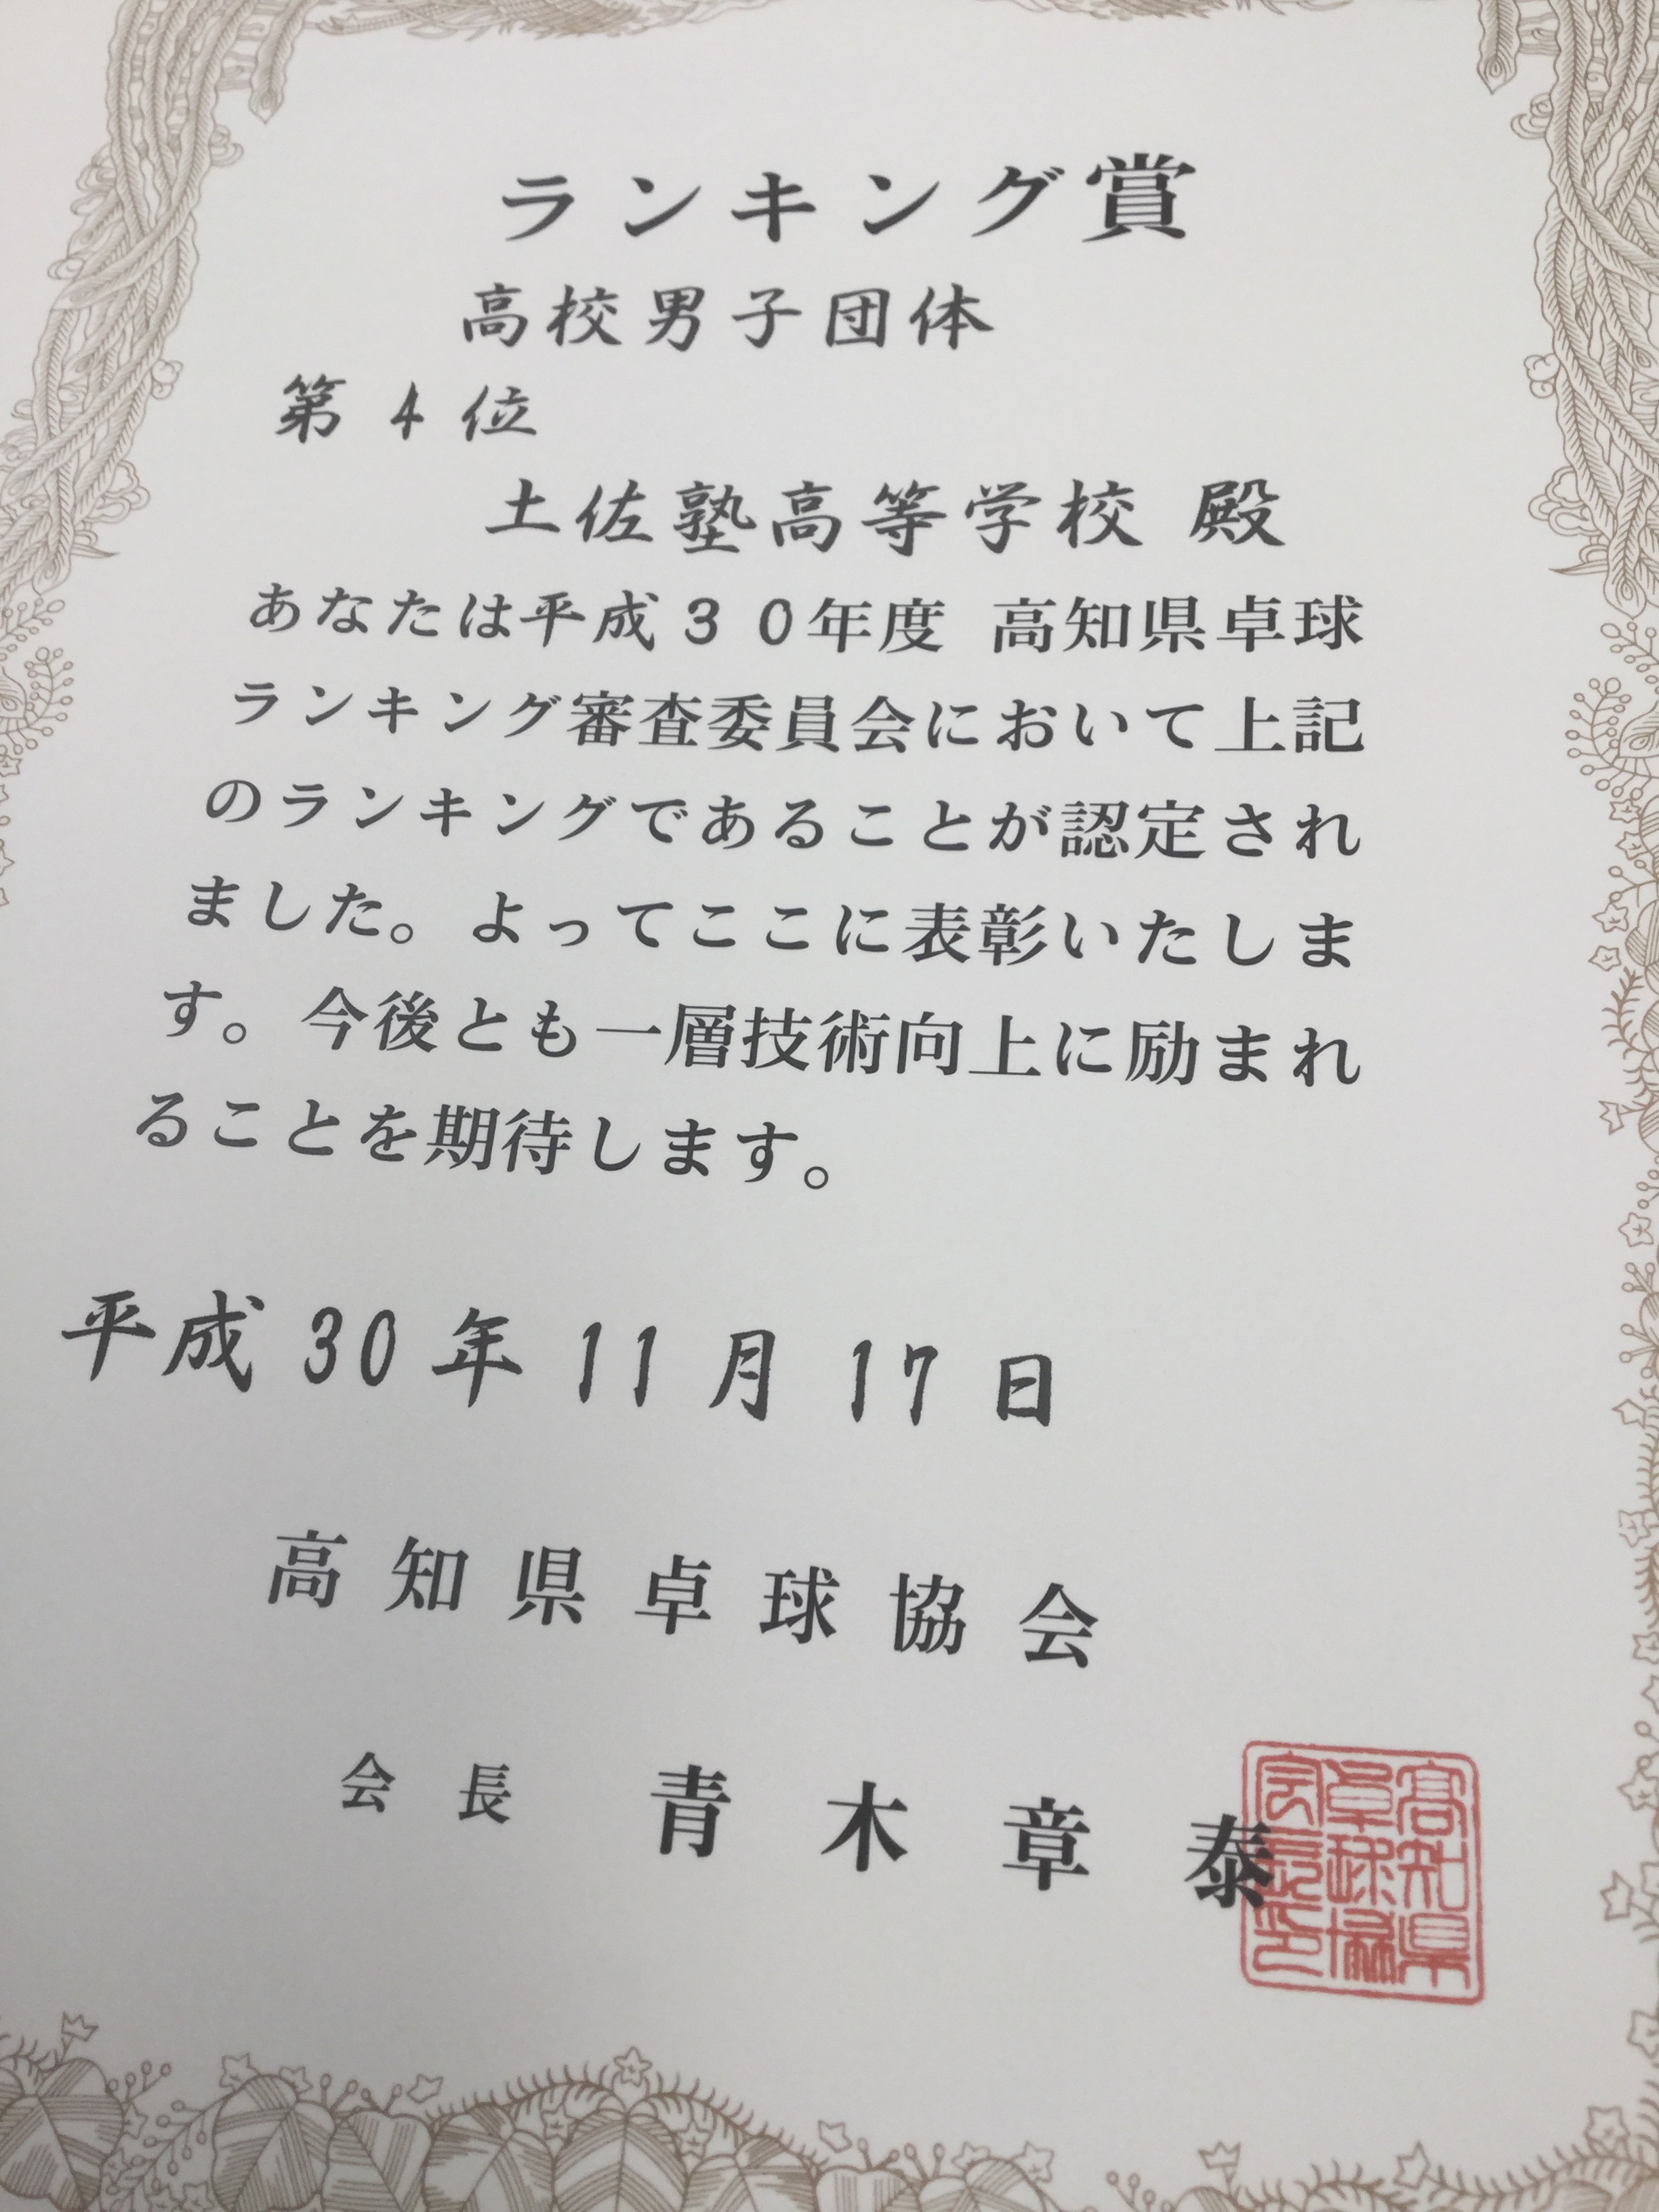 ランキング賞
高校男子団体
第 4 位
土佐塾高等学校 殿
あなたは平成30年度 高知県卓球
ランキング審査委員会において上記
のランキングであることが認定され
ました。よってここに表彰いたしま
す。今後とも一層技術向上に励まれ
ることを期待します。
平成 30 年 11 月 17 日
高知県卓球協会
会長 青木章泰
高知県
卓球協
会長印